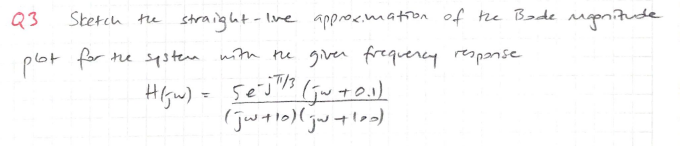 Q3 Sketch the straight-line approximation of the Bode magnitude
plot for the system with the given frequency response
H(jw) = 5e^-jπ/3 (jw + 0.1)
(jw+10)(jw+100)